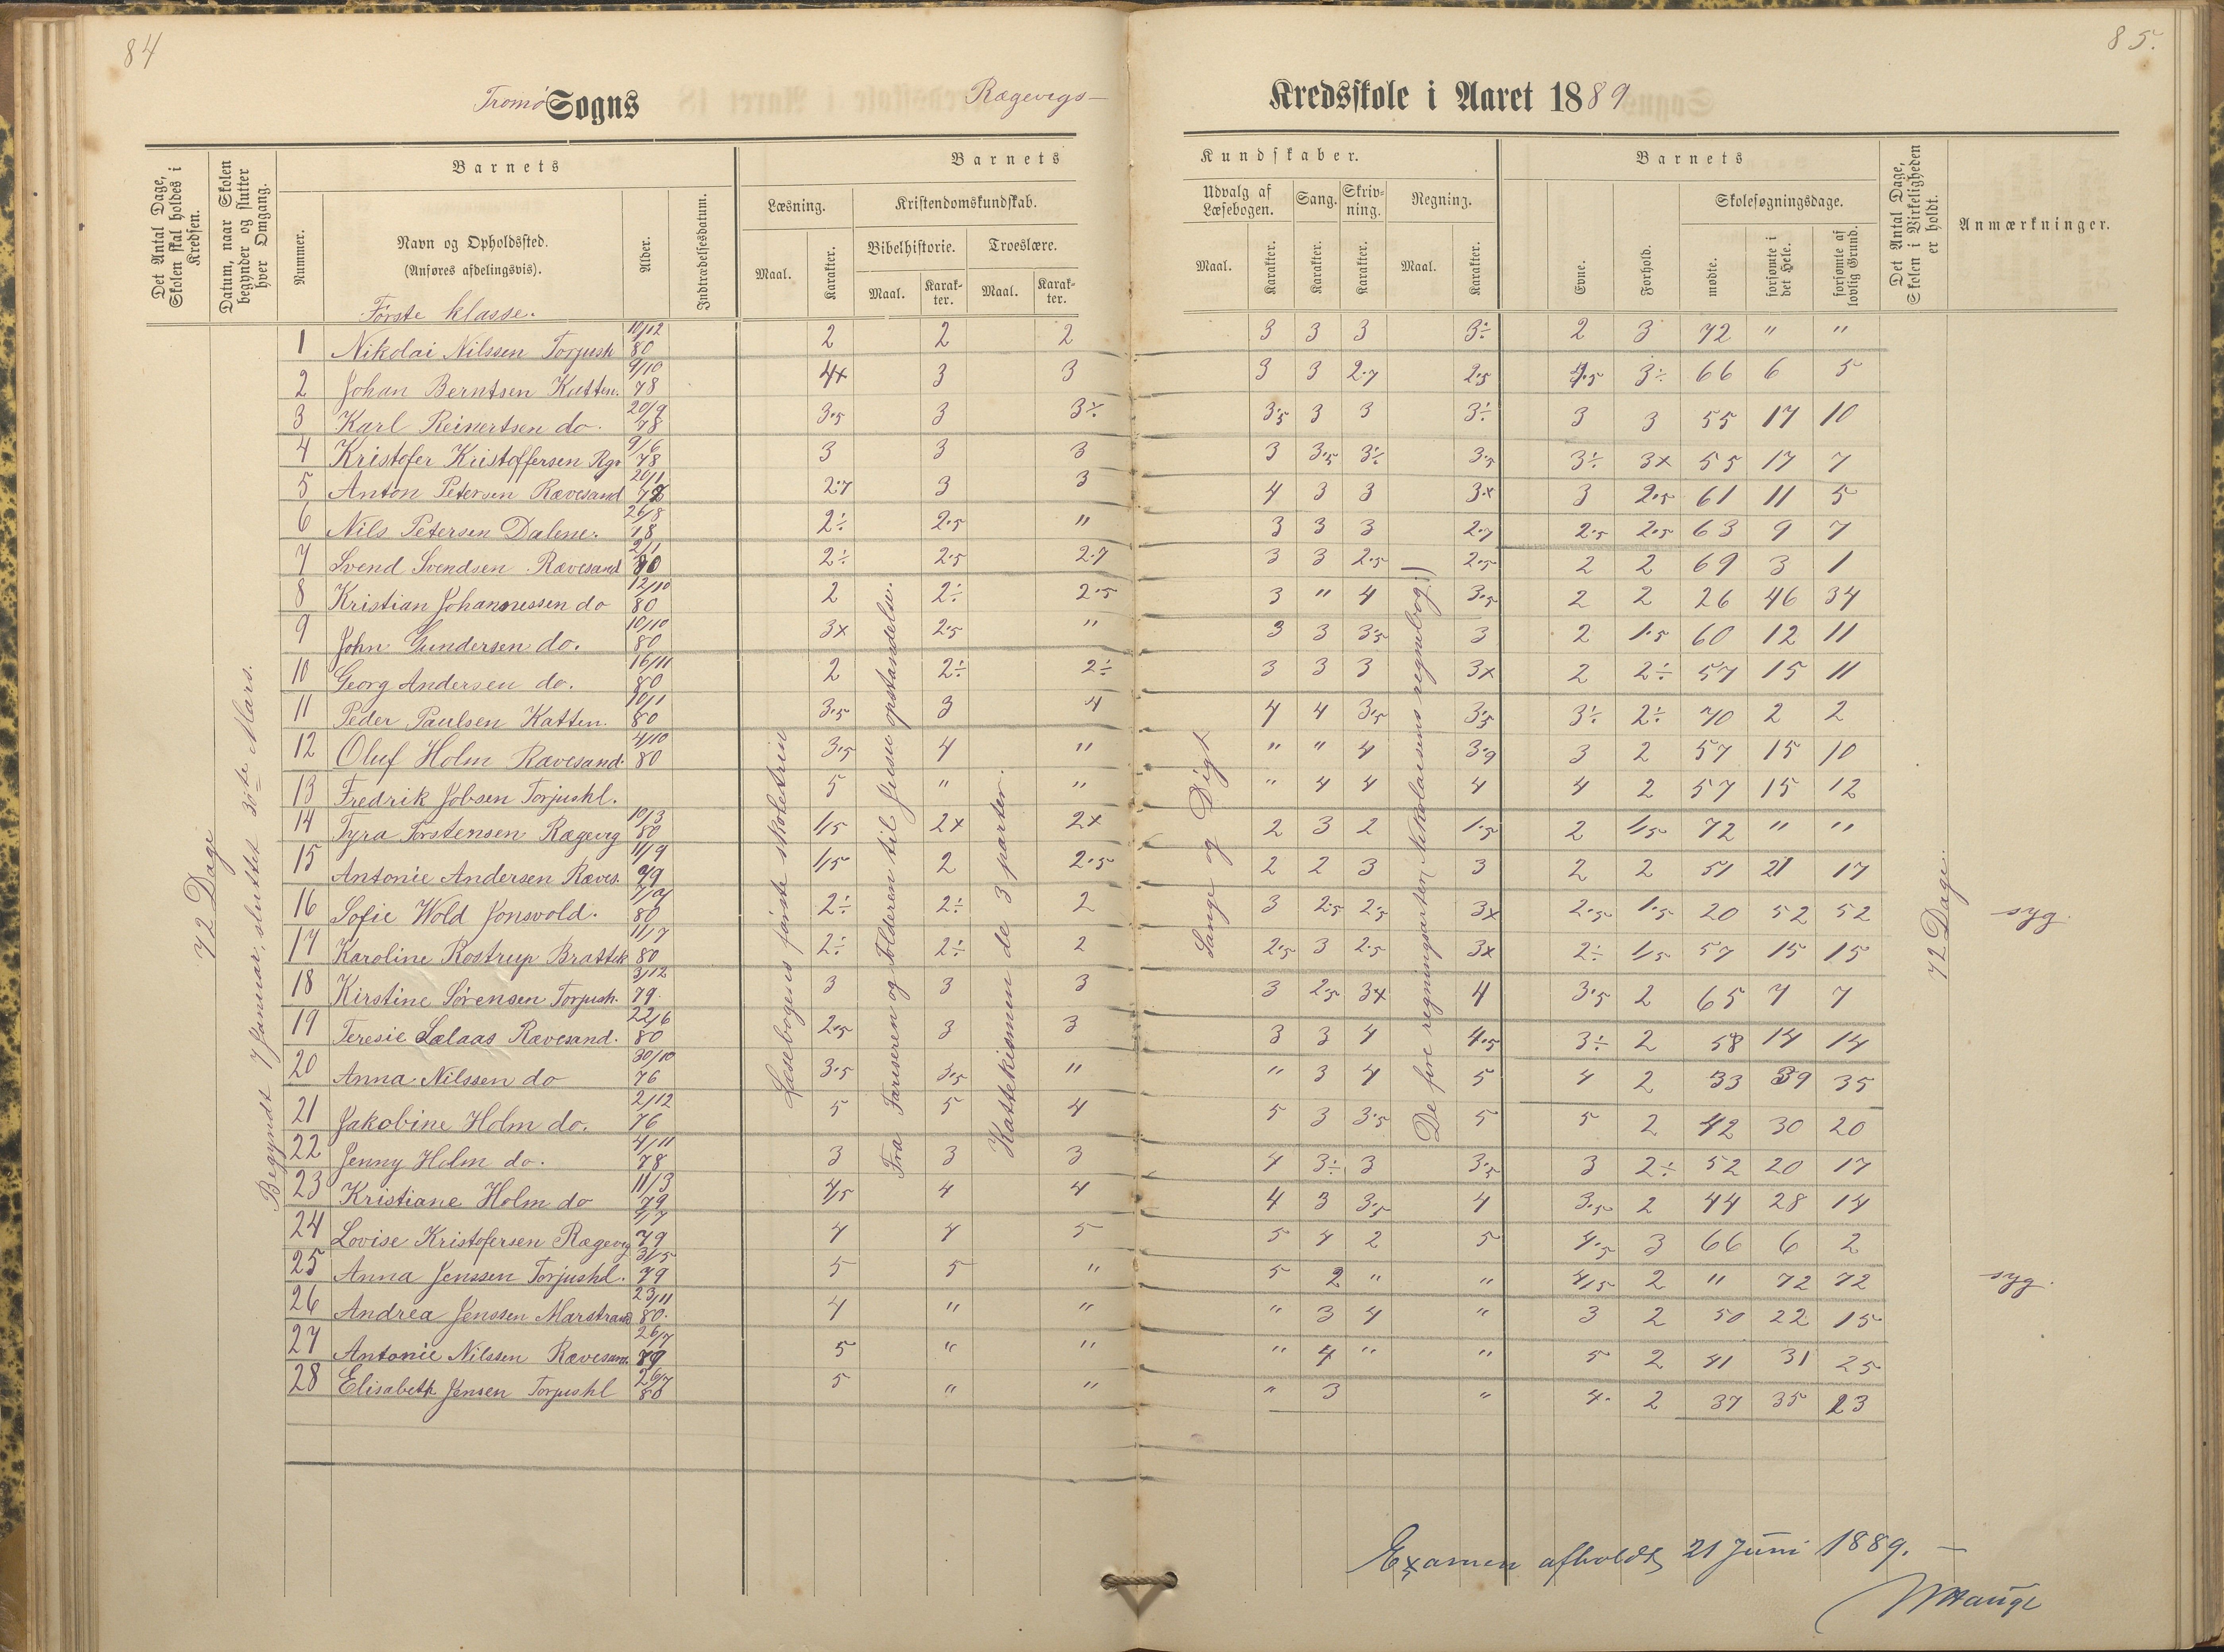 84
85.
Tromø Sogns Rægevigs- Kredsskole i Aaret 1889
Det Antal Dage, Skolen skal holdes i Kredsen.
Datum, naar Skolen begynder og slutter hver Omgang.
Nummer.
Barnets
Navn og Opholdssted.
(Anføres afdelingsvis).
Alder.
Indtrædelsesdatum.
Barnets Kundskaber.
Læsning.
Maal. Karakter.
Kristendomskundskab.
Bibelhistorie. Troeslære.
Maal. Karakter. Maal. Karakter.
Udvalg af Læsebogen.
Maal. Karakter.
Sang. Karakter.
Skrivning. Karakter.
Regning.
Maal. Karakter.
Barnets
Evne. Forhold.
Skolesøgningsdage.
mødte. forsømte i det Hele. forsømte af lovlig Grund.
Det Antal Dage, Skolen i Virkeligheden er holdt.
Anmærkninger.
72 Dage
Begyndt 7 Januar, sluttet 30te Mars.
Læsebogens første skoletrin
Fra Fariseren og Tolderen til Jesu opstandelse.
Kattekismen de 3 parter.
Sange og Digt
De fire regningsarter (Nikolaisens regnebog.)
72 Dage.
Første klasse.
1 Nikolai Nilssen Torjush 10/12 80 2 2 2 3 3 3 3÷ 2 3 72 " "
2 Johan Berntsen Katten. 9/10 78 4x 3 3 3 3 2.7 2.5 4.5 3÷ 66 6 5
3 Karl Reinertsen do. 20/9 78 3.5 3 3÷ 3.5 3 3 3÷ 3 3 55 17 10
4 Kristofer Kristoffersen Rgv 9/6 78 3 3 3 3 3.5 3÷ 3.5 3÷ 3x 55 17 7
5 Anton Petersen Rævesand 20/11 78 2.7 3 3 4 3 3 3.x 3 2.5 61 11 5
6 Nils Petersen Dalene. 26/8 78 2÷ 2.5 " 3 3 3 2.7 2.5 2.5 63 9 7
7 Svend Svendsen Rævesand 2/1 80 2÷ 2.5 2.7 3 3 2.5 2.5 2 2 69 3 1
8 Kristian Johannessen do 12/10 80 2 2÷ 2.5 3 " 4 3.5 2 2 26 46 34
9 John Gundersen do. 10/10 80 3x 2.5 " 3 3 3.5 3 2 1.5 60 12 11
10 Georg Andersen do. 16/11 80 2 2÷ 2÷ 3 3 3 3x 2 2÷ 57 15 11
11 Peder Paulsen Katten. 10/1 80 3.5 3 4 4 4 3.5 3.5 3÷ 2÷ 70 2 2
12 Oluf Holm Rævesand. 4/10 80 3.5 4 " " " 4 3.9 3 2 57 15 10
13 Fredrik Jobsen Torjushl. 5 " " " 4 4 4 4 2 57 15 12
14 Tyra Torstensen Rægevig 10/3 80 1.5 2x 2x 2 3 2 1.5 2 1.5 72 " "
15 Antonie Andersen Ræves. 11/9 79 1.5 2 2.5 2 2 3 3 2 2 51 21 17
16 Sofie Wold Jonsvold. 80 2÷ 2÷ 2 3 2.5 2.5 3x 2.5 1.5 20 52 52 syg.
17 Karoline Rostrup Brattek 11/7 80 2÷ 2÷ 2 2.5 3 2.5 3x 2÷ 1.5 57 15 15
18 Kirstine Sørensen Torjush. 3/12 79. 3 3 3 3 2.5 3x 4 3.5 2 65 7 7
19 Teresie Lælaas Rævesand. 22/6 80 2.5 3 3 3 3 4 4.5 3÷ 2 58 14 14
20 Anna Nilssen do 30/10 76 3.5 3.5 " " 3 4 5 4 2 33 39 35
21 Jakobine Holm do. 2/12 76 5 5 4 5 3 3.5 5 5 2 42 30 20
22 Jenny Holm do. 4/11 78 3 3 3 4 3÷ 3 3.5 3 2÷ 52 20 17
23 Kristiane Holm do 11/3 79 4.5 4 4 4 3 3.5 4 3.5 2 44 28 14
24 Lovise Kristofersen Rægevig 4/7 79 4 4 5 5 4 2 5 4.5 3 66 6 2
25 Anna Jenssen Torjushl. 31/5 79 5 5 " 5 2 " " 4.5 2 " 72 72 syg.
26 Andrea Jenssen Marstrand 23/11 80. 4 " " " 3 4 " 3 2 50 22 15
27 Antonie Nilssen Rævesand. 26/7 79 5 " " " 4 " " 5 2 41 31 25
28 Elisabeth Jensen Torjushl 26/7 80 5 " " " 3 " 4. 2 37 35 23
Examen afholdt 21 Juni 1889. —
Hauge